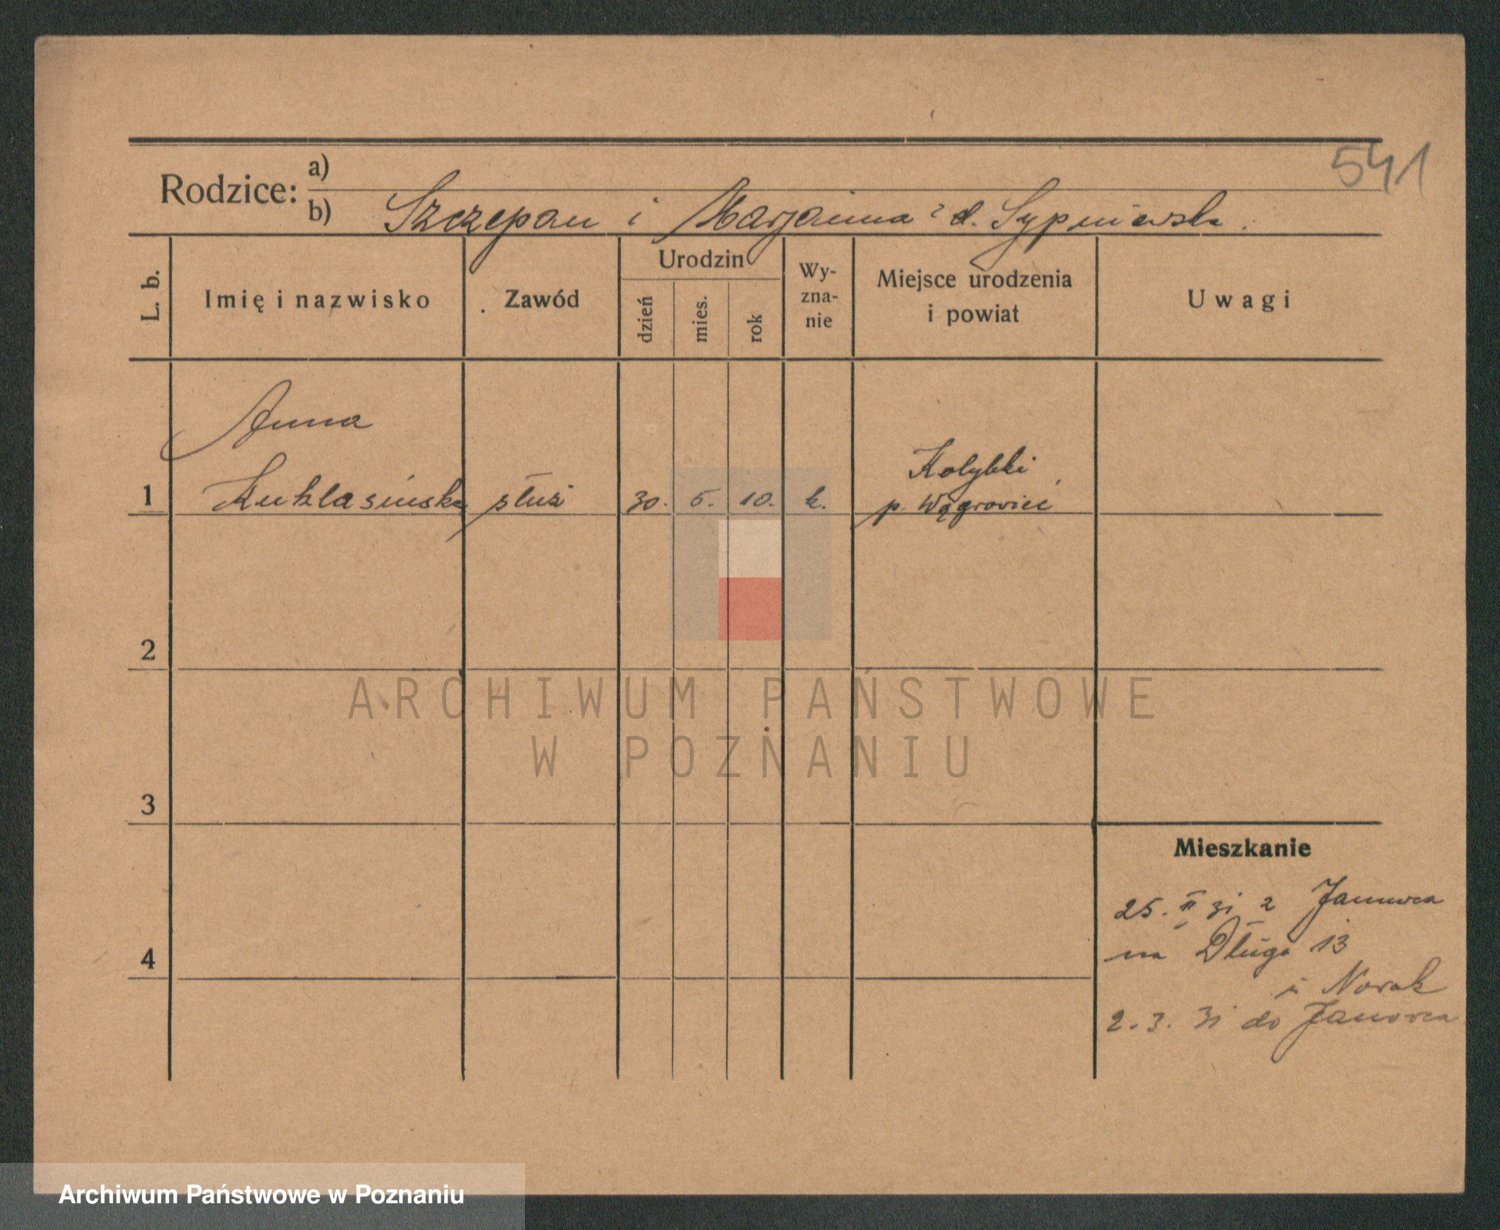 541
Rodzice: a)
b) Szczepan i Marjanna z d. Sypniewska.
L. b.
Imię i nazwisko
Zawód
Urodzin
dzień
mies.
rok
Wy-
zna-
nie
Miejsce urodzenia
i powiat
Uwagi
Anna
1 Kuklasińska służ 30. 5. 10. k.
Kołybki
p. Wągrowiec
2
3
4
Mieszkanie
25. II 31 z Janowca
na Długa 13
u Nowak
2. 3. 31 do Janowca
ARCHIWUM PAŃSTWOWE
W POZNANIU
Archiwum Państwowe w Poznaniu